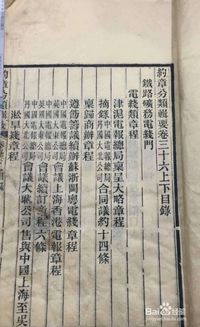 約章分類輯要卷三十六上下目錄
鐵路礦務電綫門
電綫類章程
津滬電報總局稟呈大略章程
摘錄 合同議約十四條
稟歸商辦章程
遵飭籌議續辦蘇浙閩粵電綫章程
中國電報總局 會議上海香港電報章程
中國電報總局 會議續訂章程六條
會議大北公司售與中國上海至吳
淞旱綫章程
約章分類輯要
Baidu 经验